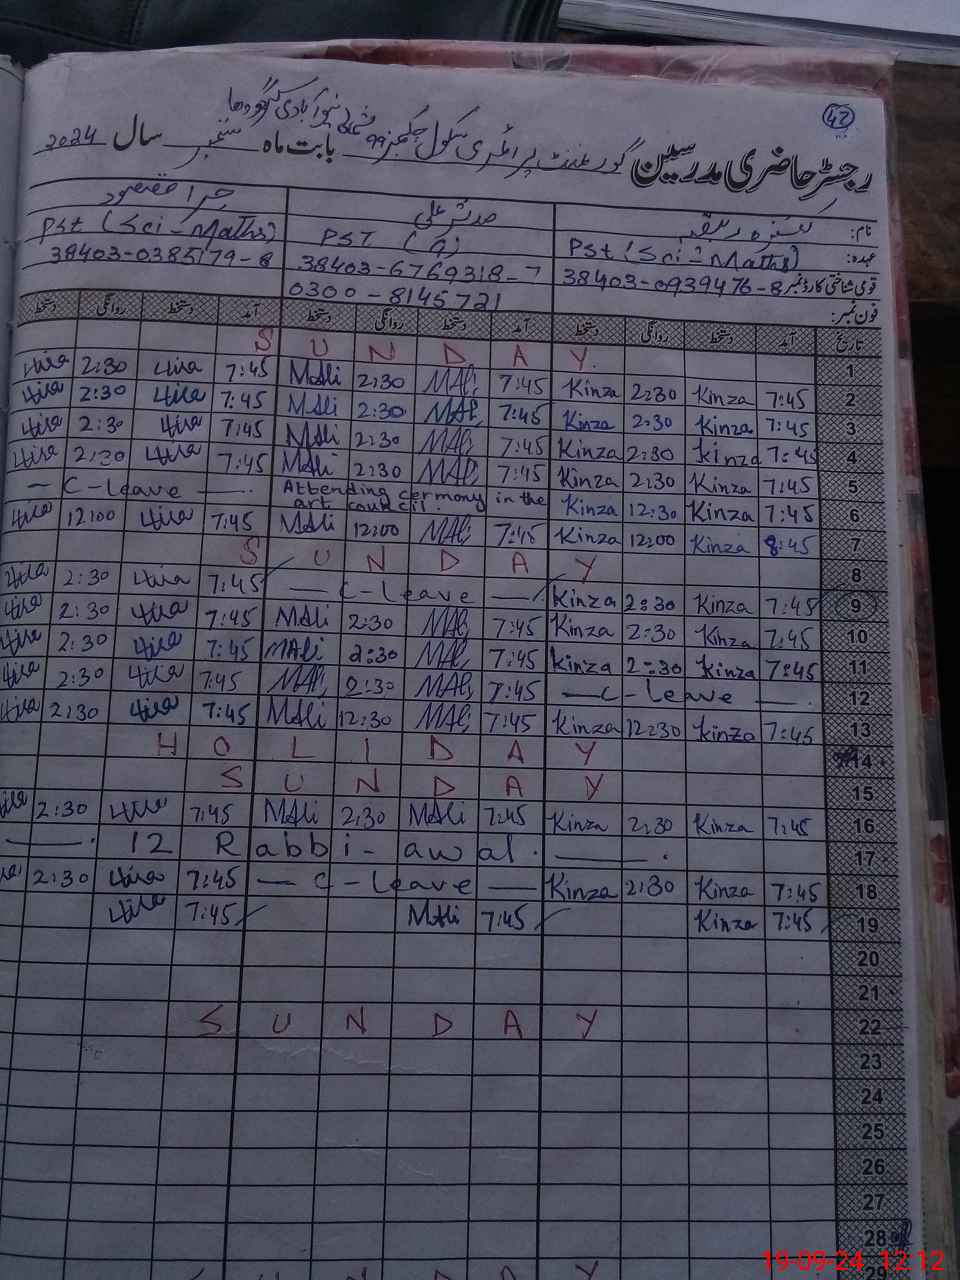 42
شمالی نیو آبادی سرگودھا
رجسٹر حاضری مدرسین گورنمنٹ پرائمری سکول چک نمبر 99 بابت ماہ ستمبر سال 2024
نام: کنزہ رفیق مدثر علی حرا مقصود
عہدہ: Pst (Sci - Maths) PST (G) Pst (Sci - Maths)
قومی شناختی کارڈ نمبر 38403-0939476-8 38403-6769318-7 38403-0385179-8
فون نمبر: 0300-8145721
تاریخ آمد دستخط روانگی دستخط آمد دستخط روانگی دستخط آمد دستخط روانگی دستخط
S U N D A Y. 1
Hira 2:30 Hira 7:45 MAli 2:30 MAli 7:45 Kinza 2:30 Kinza 7:45 2
Hira 2:30 Hira 7:45 MAli 2:30 MAli 7:45 Kinza 2:30 Kinza 7:45 3
Hira 2:30 Hira 7:45 MAli 2:30 MAli 7:45 Kinza 2:30 Kinza 7:45 4
Hira 2:30 Hira 7:45 MAli 2:30 MAli 7:45 Kinza 2:30 Kinza 7:45 5
— C-leave —. Attending cermony in the art council. Kinza 12:30 Kinza 7:45 6
Hira 12:00 Hira 7:45 MAli 12:00 MAli 7:45 Kinza 12:00 Kinza 8:45 7
S U N D A Y 8
Hira 2:30 Hira 7:45 — C-leave — Kinza 2:30 Kinza 7:45 9
Hira 2:30 Hira 7:45 MAli 2:30 MAli 7:45 Kinza 2:30 Kinza 7:45 10
Hira 2:30 Hira 7:45 MAli 2:30 MAli 7:45 Kinza 2:30 Kinza 7:45 11
Hira 2:30 Hira 7:45 MAli 2:30 MAli 7:45 — C-leave —. 12
Hira 2:30 Hira 7:45 MAli 12:30 MAli 7:45 Kinza 12:30 Kinza 7:45 13
H O L I D A Y 14
S U N D A Y 15
Hira 2:30 Hira 7:45 MAli 2:30 MAli 7:45 Kinza 2:30 Kinza 7:45 16
——. 12 Rabbi-awal. ——. 17
Hira 2:30 Hira 7:45 — C-leave — Kinza 2:30 Kinza 7:45 18
Hira 7:45 MAli 7:45 Kinza 7:45 19
20
21
S U N D A Y 22
23
24
25
26
27
28
S U N D A Y 29
19-09-24 12:12